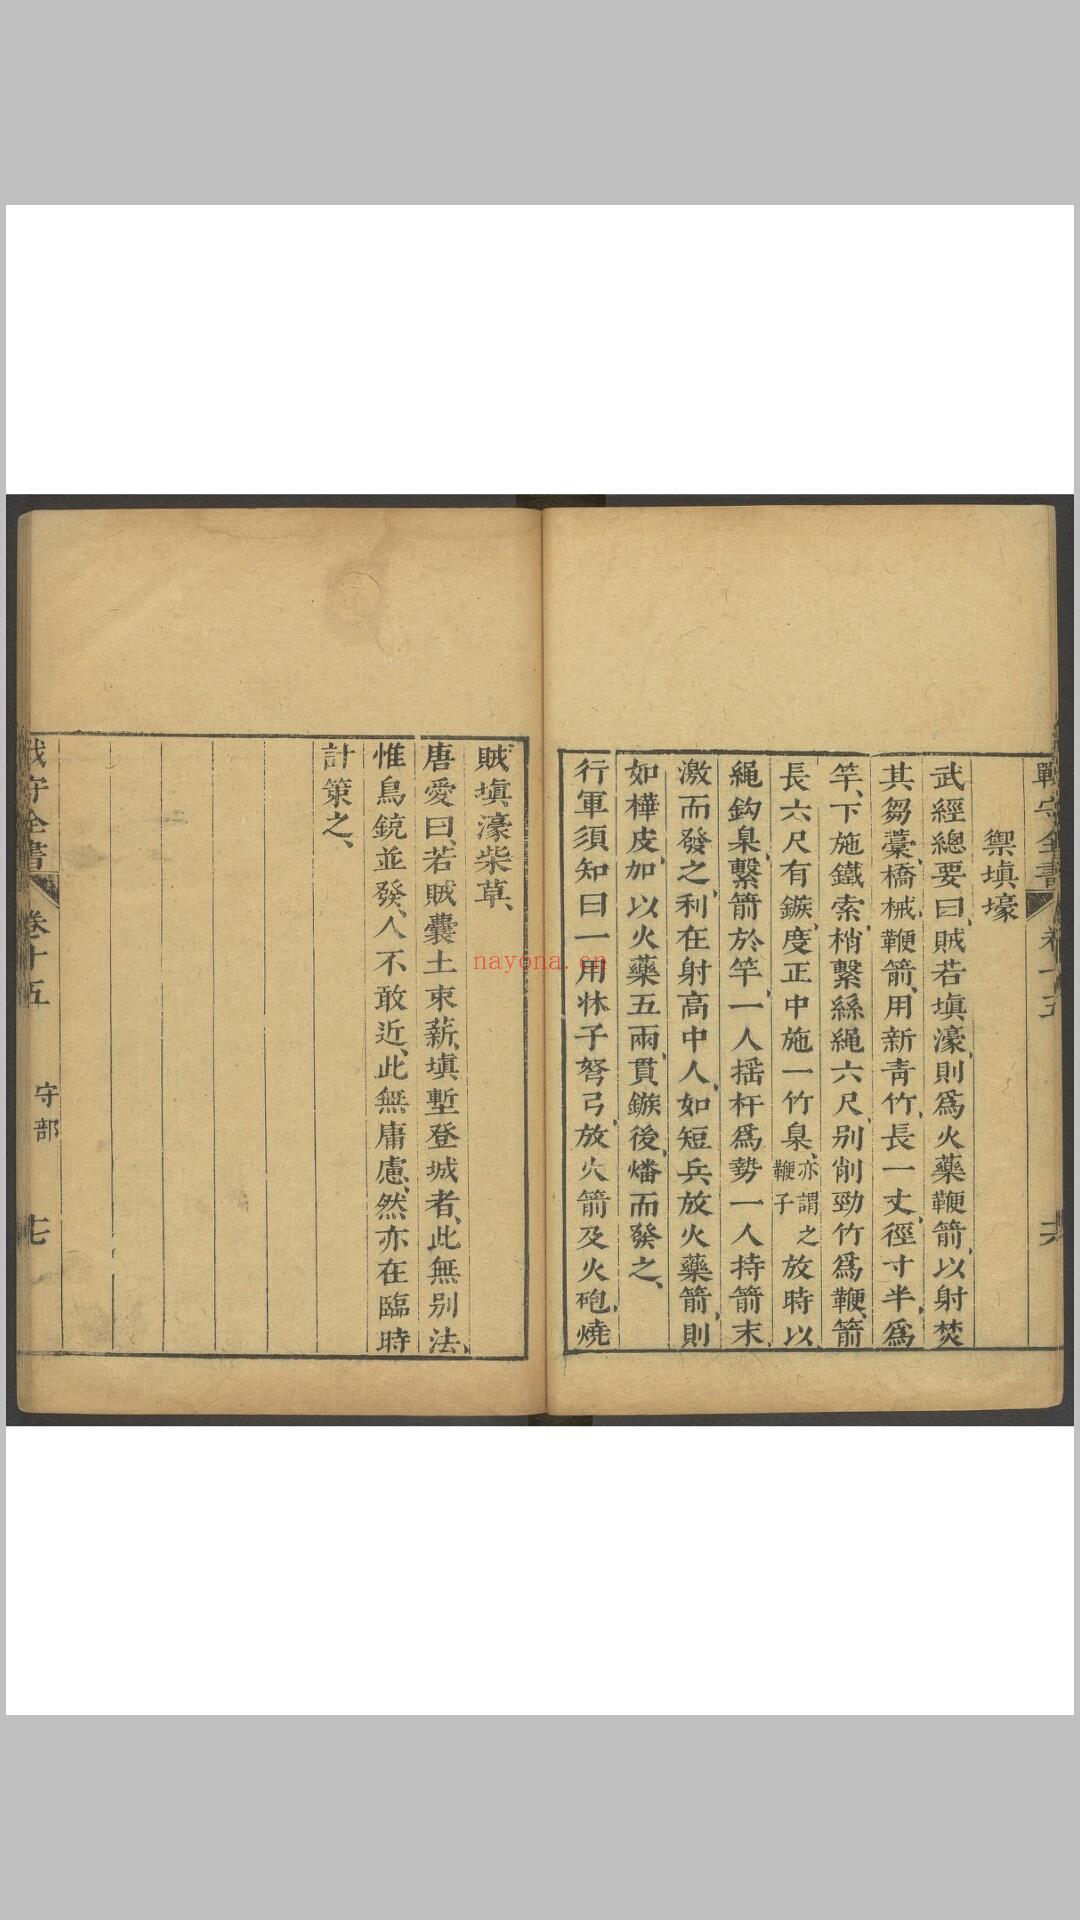 戰守全書
卷十五
六
禦塡壕
武經總要曰、賊若塡濠、則爲火藥鞭箭、以射焚
其芻藁、橋械、鞭箭、用新靑竹、長一丈、徑寸半、爲
竿、下施鐵索、梢繫絲繩六尺、別削勁竹爲鞭、箭
長六尺有鏃、度正中施一竹臬、亦謂之鞭子放時以
繩鈎臬、繫箭於竿、一人摇杆爲勢一人持箭末、
激而發之、利在射高中人、如短兵放火藥箭、則
如樺皮、加以火藥五兩、貫鏃後、燔而發之、
行軍須知曰一用牀子弩弓、放火箭及火砲、燒
賊塡濠柴草、
唐愛曰、若賊囊土束薪、塡塹登城者、此無別法、
惟鳥銃並發、人不敢近、此無庸慮、然亦在臨時
計策之、
戰守全書
卷十五
守部
七
nayona.cn